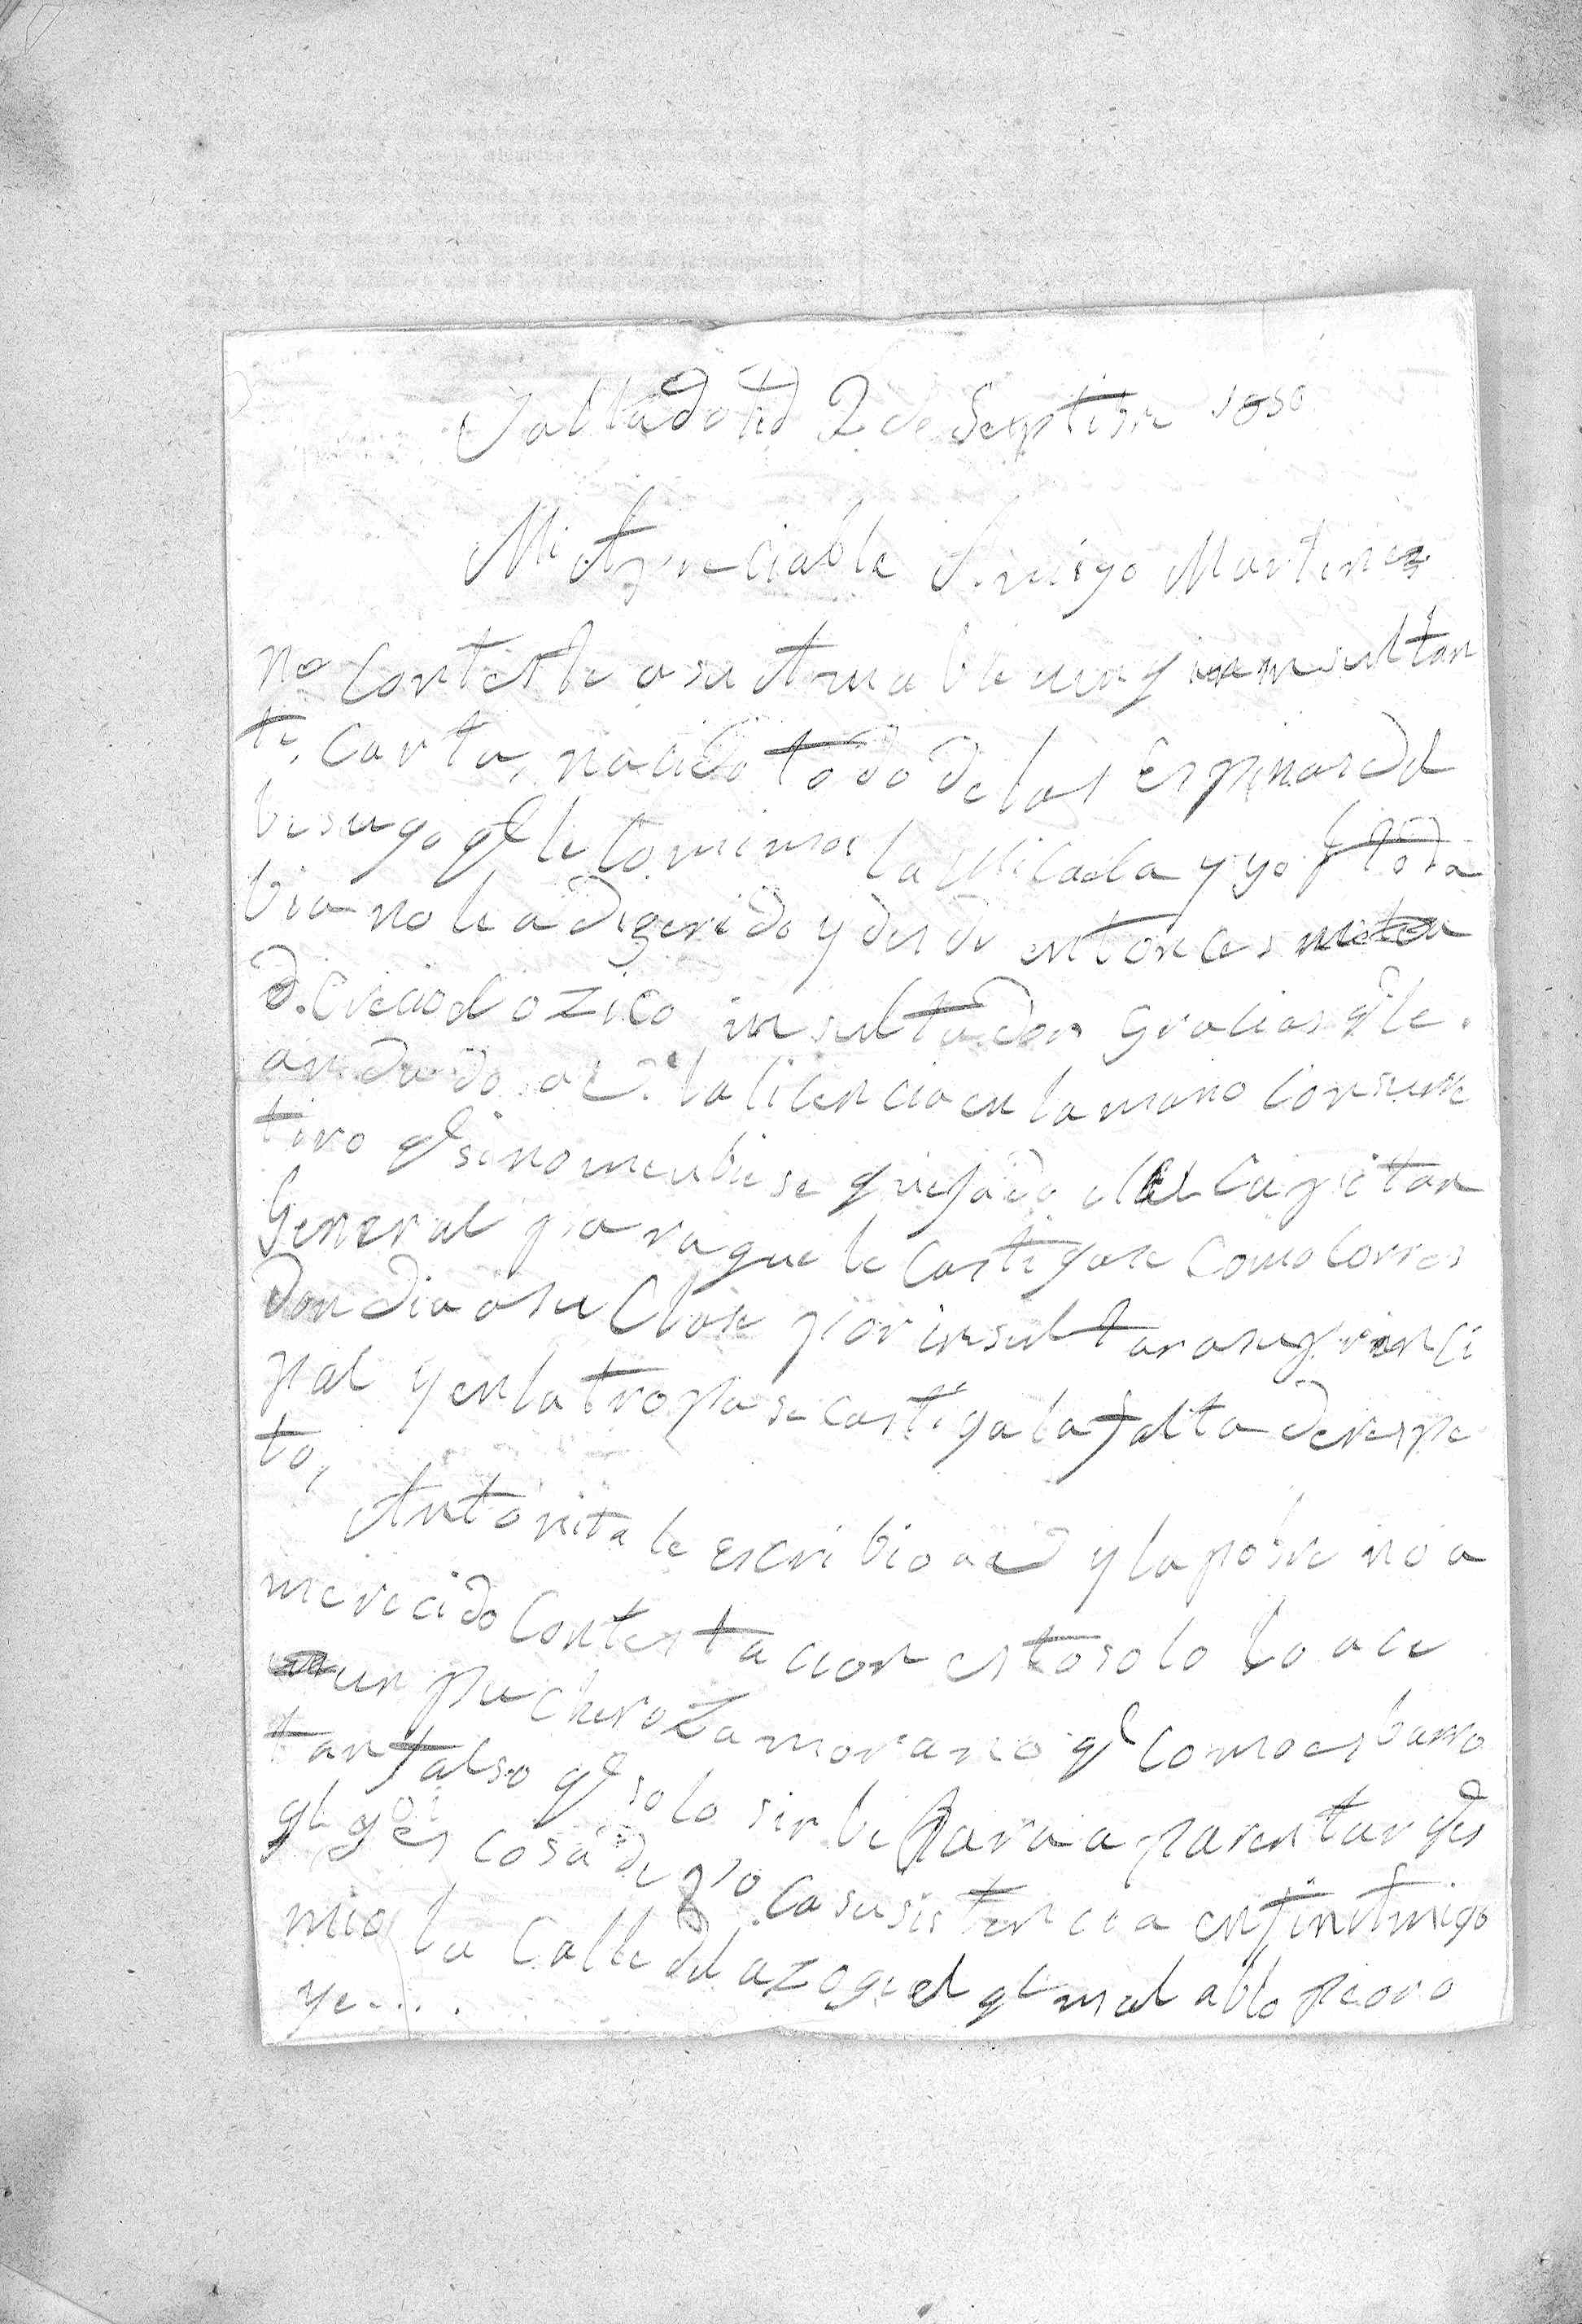 Valladolid 2 de Septibre 1850
Mi Apreciable Amigo Martinez
no conteste a su Amable aunq insultan
te, carta, nacido todo de las Espinas del
besugo qe le comimos la Micaela y yo q toda
bia no le a digerido y desde entonces
d. crecio el ozico insultador gracias qe le
an dado a V. la licencia en la mano con su re
tiro qe sino me ubiese quejado al Capitan
General para que le castigase como corres
dondia a su Clase por insultar a su princi
pal y en la tropa se castiga la falta de respe
to,
Antonita le escribio a V y la pobre no a
merecido contestacion esto solo lo ace
un puchero Zamorano qe como es barro
tan falso qe solo sirbe para aparentar qe es
qe y es cosa de poca susistencia en fin Amigo
mio la Calle del azoge el qe mal ablo peor o
ye....